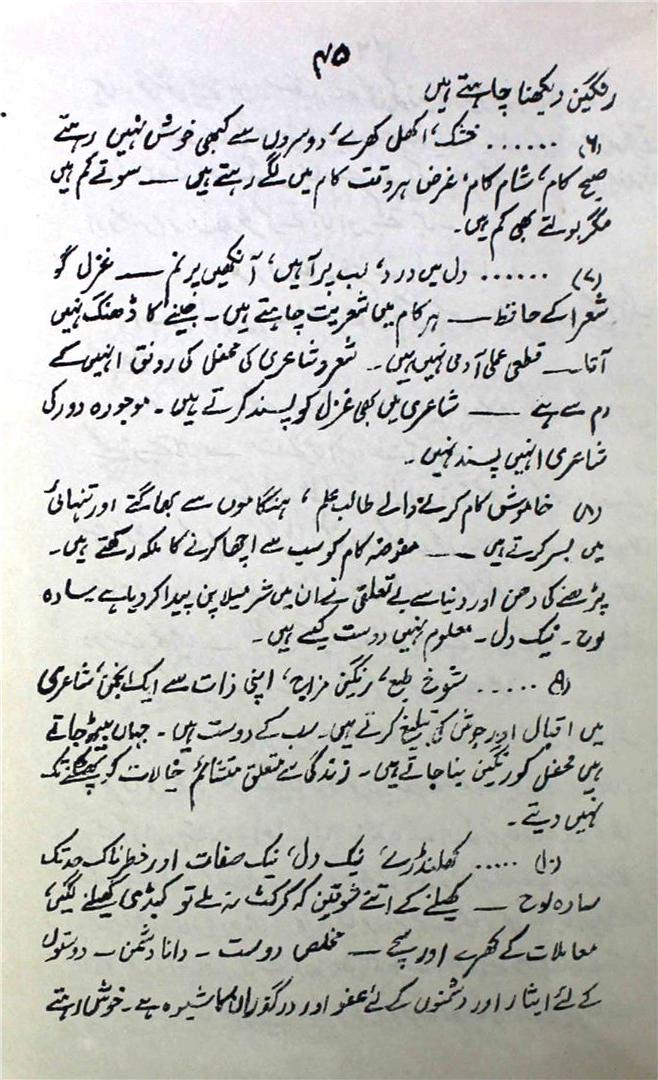 ۴۵
رنگین دیکھنا چاہتے ہیں
(۶) ...... خشک، اکھل کھرے، دوسروں سے کبھی خوش نہیں رہتے
صبح کام، شام کام، غرض ہر وقت کام میں لگے رہتے ہیں — سوتے کم ہیں
مگر بولتے بھی کم ہیں۔
(۷) ...... دل میں درد، لب پر آہیں، آنکھیں پرنم — غزل گو
شعرا کے حافظ — ہر کام میں شعریت چاہتے ہیں۔ جینے کا ڈھنگ نہیں
آتا — قطعی عملی آدمی نہیں ہیں۔ شعر و شاعری کی محفل کی رونق انہیں کے
دم سے ہے — شاعری میں بھی غزل کو پسند کرتے ہیں۔ موجودہ دور کی
شاعری انہیں پسند نہیں۔
(۸) خاموش کام کرنے والے طالب علم، ہنگاموں سے بھاگتے اور تنہائی
میں بسر کرتے ہیں — مفوضہ کام کو سب سے اچھا کرنے کا ملکہ رکھتے ہیں۔
پڑھنے کی دھن اور دنیا سے بے تعلقی نے ان میں شرمیلا پن پیدا کر دیا ہے سادہ
لوح۔ نیک دل۔ معلوم نہیں دوست کیسے ہیں۔
(۹) ..... شوخ طبع، رنگین مزاج، اپنی ذات سے ایک انجمن، شاعری
میں اقبال اور جوش کی تبلیغ کرتے ہیں۔ سب کے دوست ہیں۔ جہاں بیٹھ جاتے
ہیں محفل کو رنگین بنا جاتے ہیں۔ زندگی سے متعلق متشائم خیالات کو پھٹکنے تک
نہیں دیتے۔
(۱۰) ..... کھلنڈرے، نیک دل، نیک صفات اور خطرناک حد تک
سادہ لوح — کھیلنے کے اتنے شوقین کہ کرکٹ نہ ملے تو کبڈی کھیلنے لگیں،
معاملات کے کھرے اور سچے — مخلص دوست۔ دانا دشمن۔ دوستوں
کے لئے ایثار اور دشمنوں کے لئے عفو اور درگزر ان کا شیوہ ہے۔ خوش رہتے